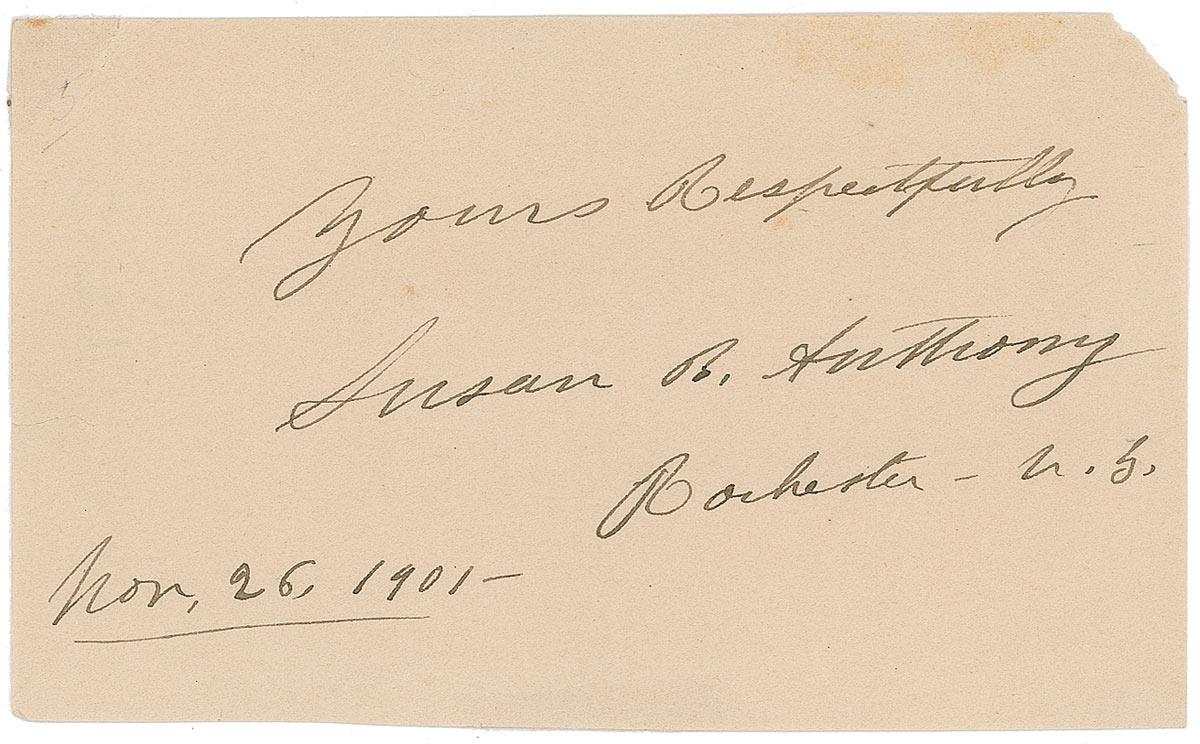 Yours Respectfully
Susan B. Anthony
Rochester - N. Y.
Nov, 26, 1901-